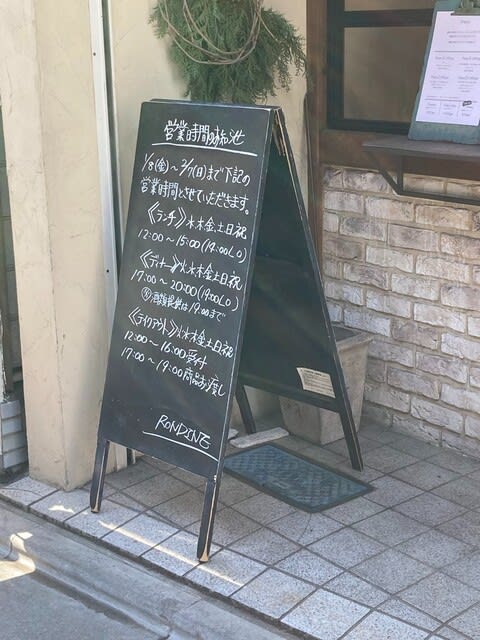 営業時間のお知らせ
1/8(金)～2/7(日)まで下記の
営業時間とさせていただきます。
《ランチ》水木金土日祝
12:00～15:00(14:00LO)
《ディナー》火水木金土日祝
17:00～20:00(19:00LO)
※酒類提供は19:00まで
《テイクアウト》火水木金土日祝
12:00～16:00受付
17:00～19:00商品お渡し
RONDINE